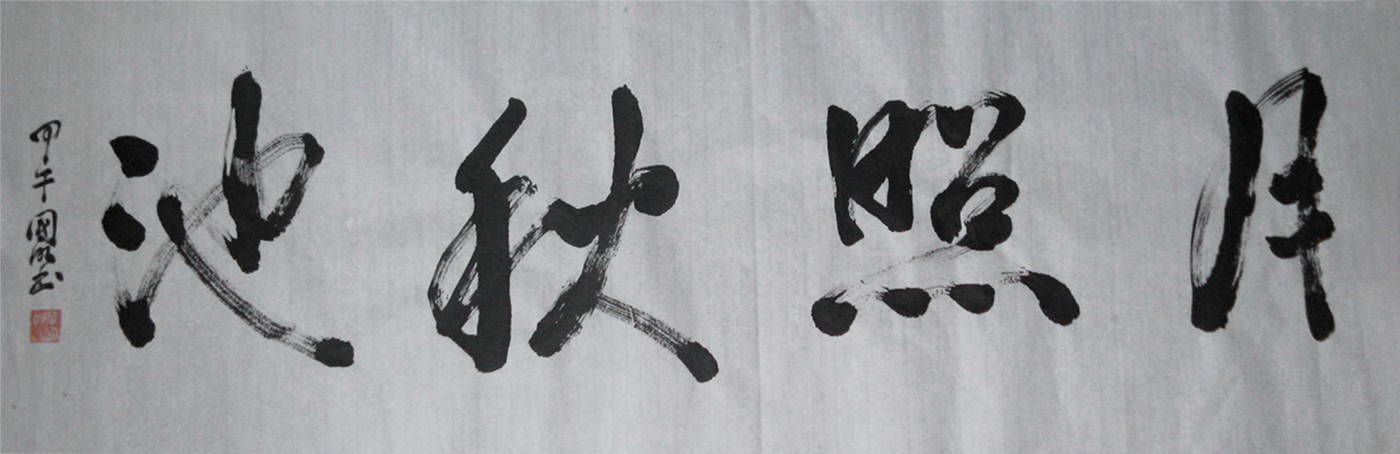 月照秋池
甲午國